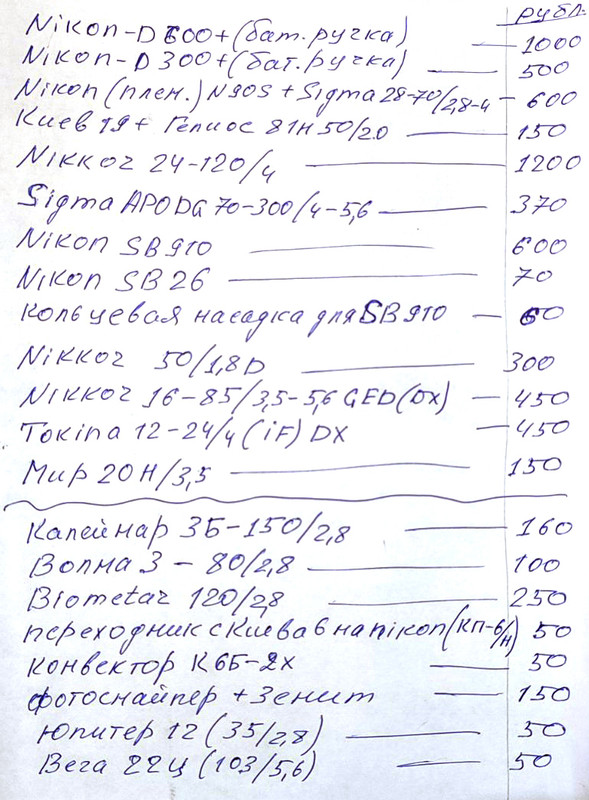 рубл.
Nikon-D600+(бат.ручка) — 1000
Nikon-D300+(бат.ручка) — 500
Nikon(плен.)N90S+Sigma 28-70/2,8-4 — 600
Киев 19+Гелиос 81Н 50/2.0 — 150
Nikkor 24-120/4 — 1200
Sigma APO DG 70-300/4-5,6 — 370
Nikon SB910 — 600
Nikon SB26 — 70
Кольцевая насадка для SB910 — 60
Nikkor 50/1,8D — 300
Nikkor 16-85/3,5-5,6 GED(DX) — 450
Tokina 12-24/4(iF)DX — 450
Мир 20Н/3,5 — 150
Калейнар 3Б-150/2,8 — 160
Волна 3 - 80/2,8 — 100
Biometar 120/2,8 — 250
переходник с Киева 6 на nikon(КП-6/Н) 50
конвектор К6Б-2х — 50
фотоснайпер + Зенит — 150
Юпитер 12 (35/2,8) — 50
Вега 22Ц (103/5,6) — 50